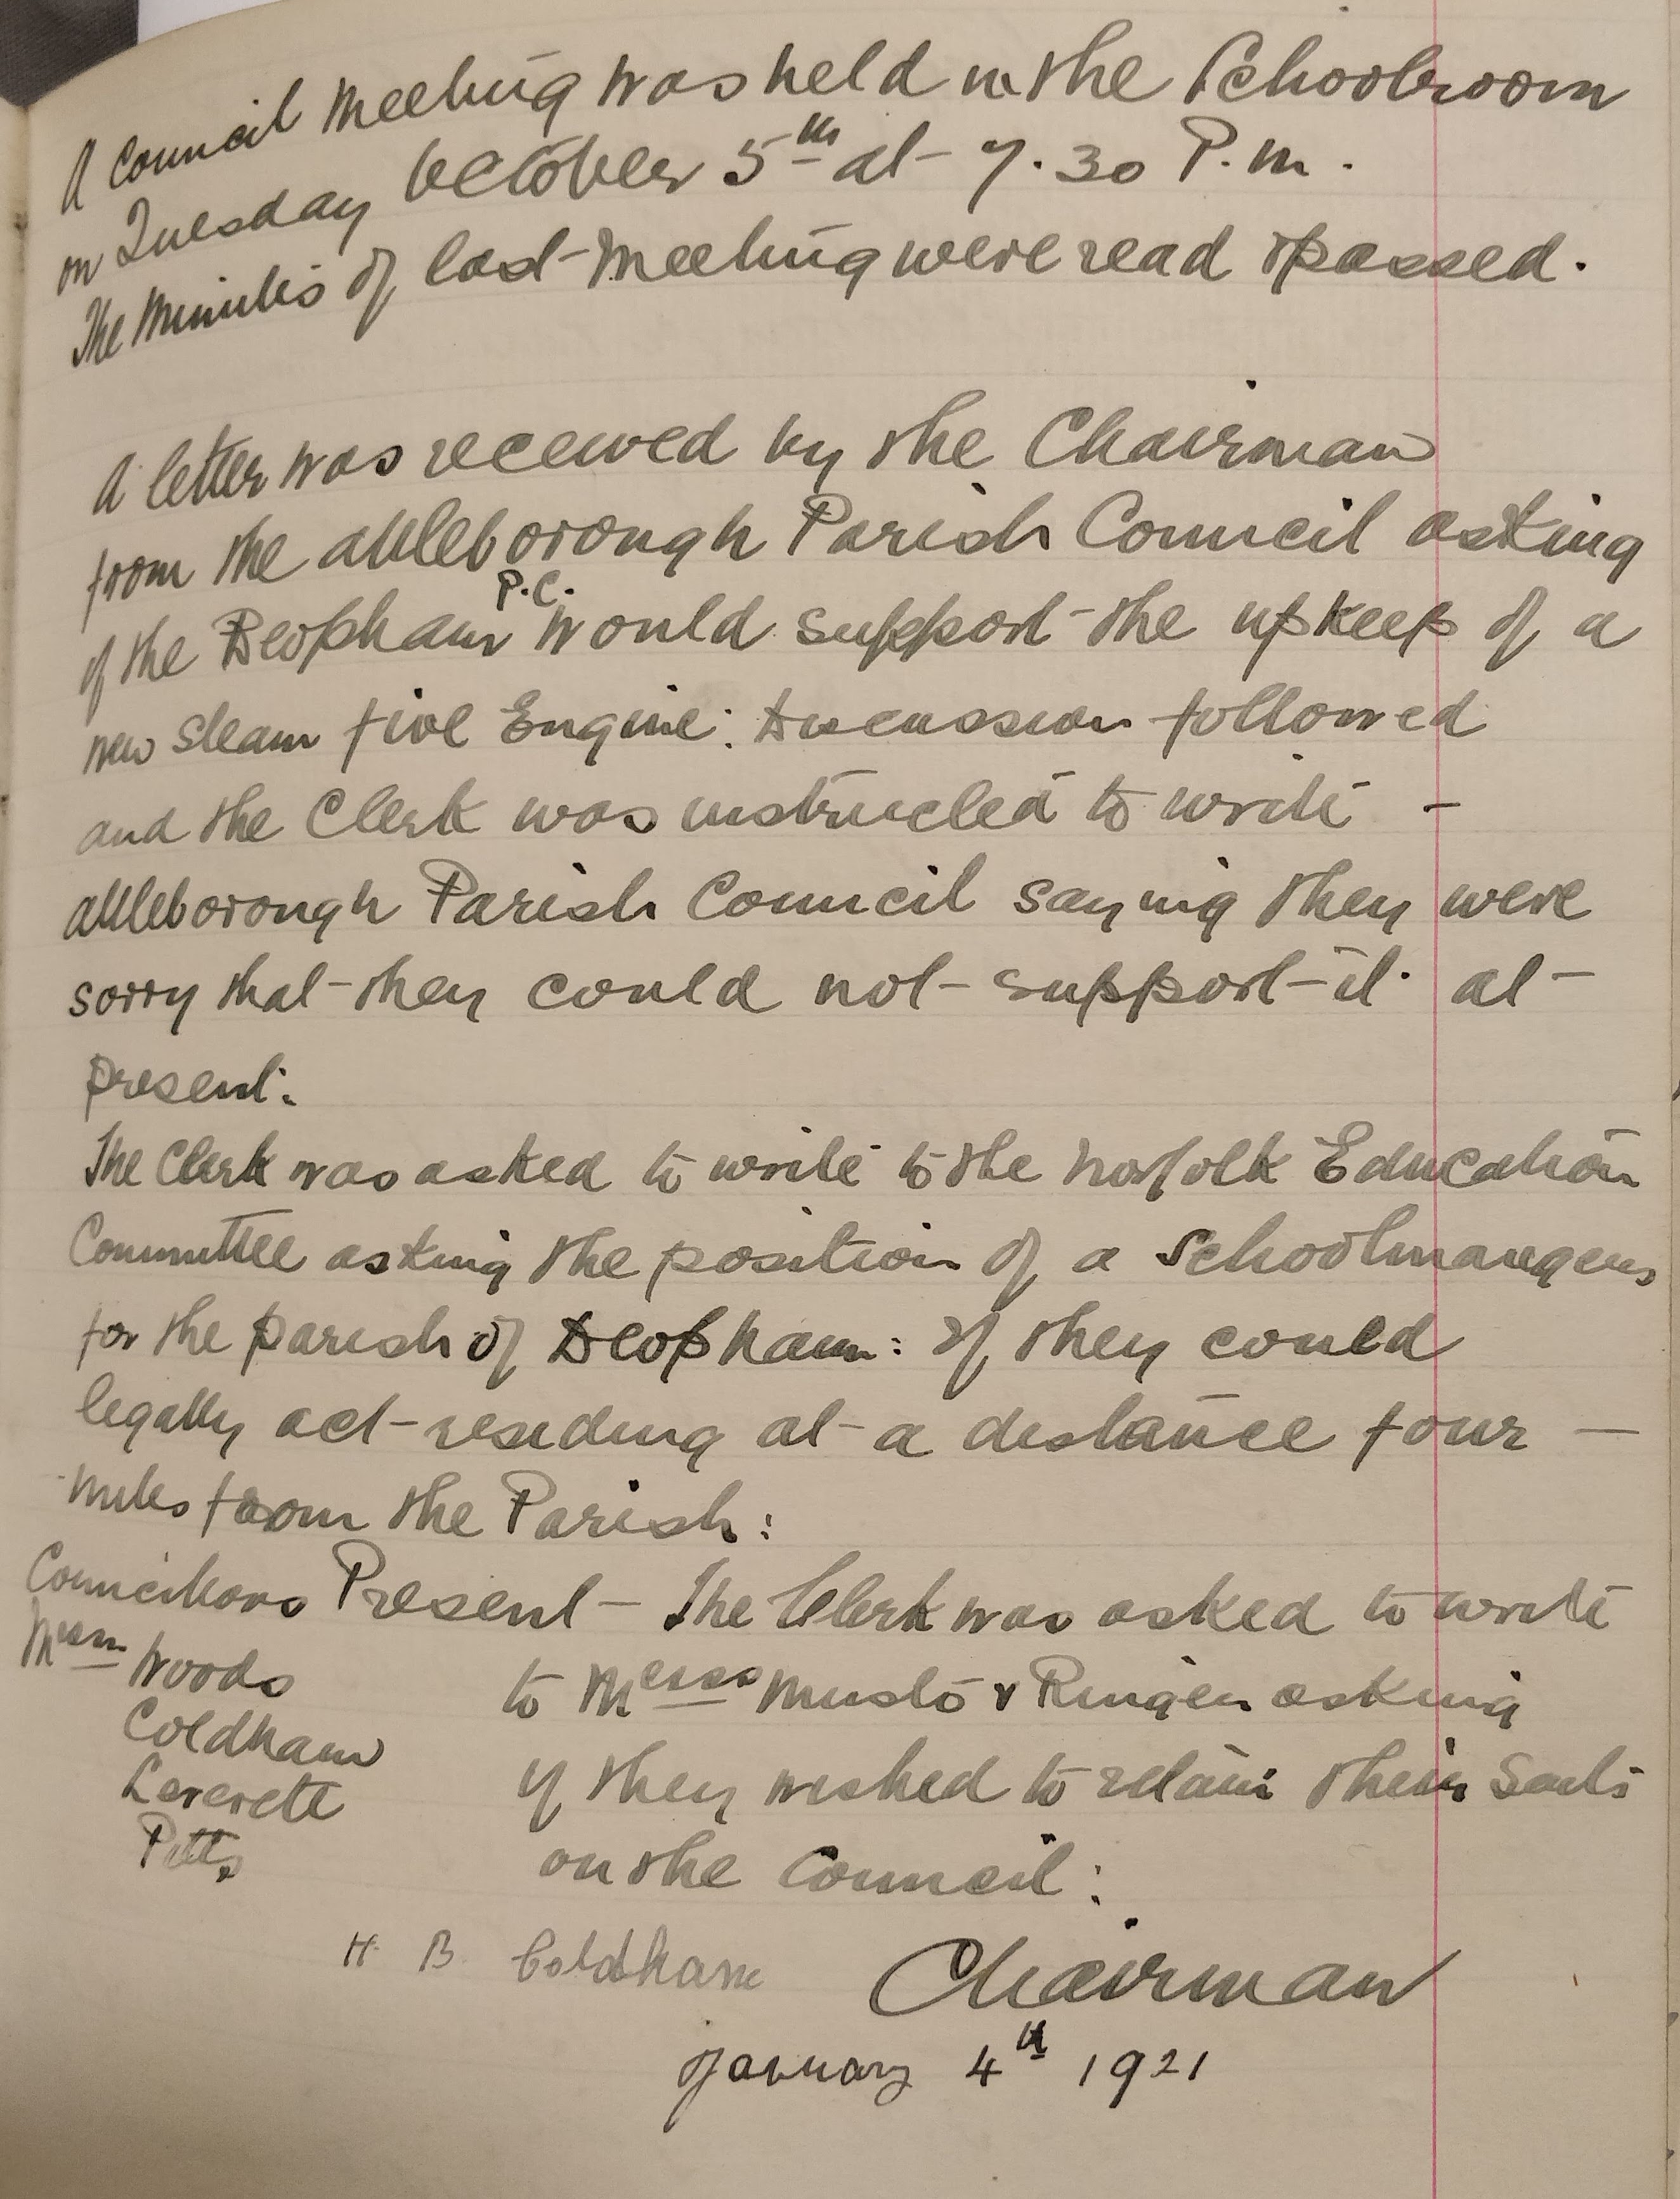 A Council Meeting was held in the Schoolroom
on Tuesday October 5th at 7.30 P.m.
The Minutes of last Meeting were read & passed.
A letter was received by the Chairman
from the Attleborough Parish Council asking
if the Deopham P.C. would support the upkeep of a
new Steam fire Engine: Discussion followed
and the Clerk was instructed to write –
Attleborough Parish Council saying they were
sorry that they could not support it at
present:
The Clerk was asked to write to the Norfolk Education
Committee asking the position of a Schoolmanagers
for the parish of Deopham: if they could
legally act residing at a distance four –
miles from the Parish:
Councillors Present – The Clerk was asked to write
Messrs Woods
to Messrs Musto & Ringer asking
Coldham
Leverette
if they wished to retain their Seats
Pitts
on the Council:
H. B. Coldham Chairman
January 4th 1921